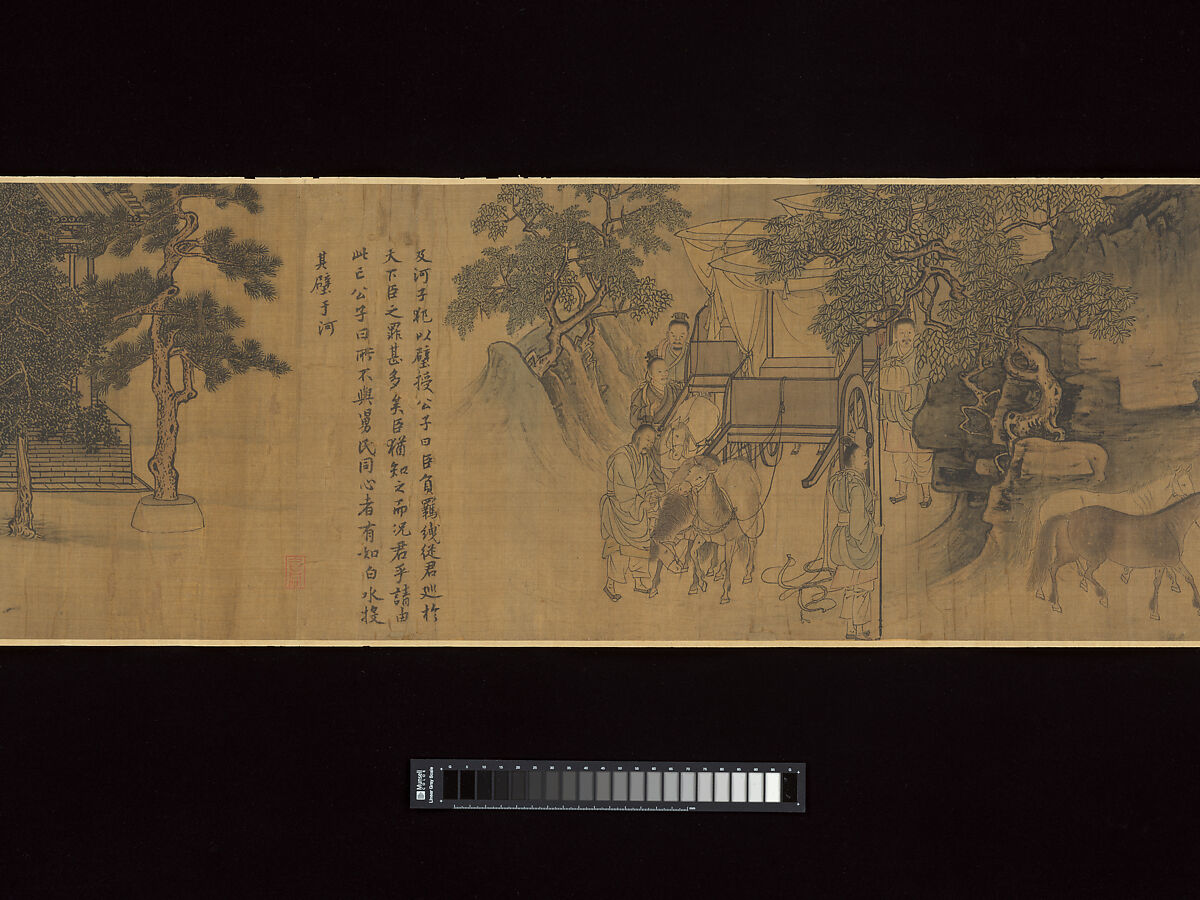 及河子犯以璧授公子曰臣負羈絏從君巡於
天下臣之罪甚多矣臣猶知之而況君乎請由
此亡公子曰所不與舅氏同心者有如白水投
其璧于河
Munsell
COLOR
Linear Gray Scale